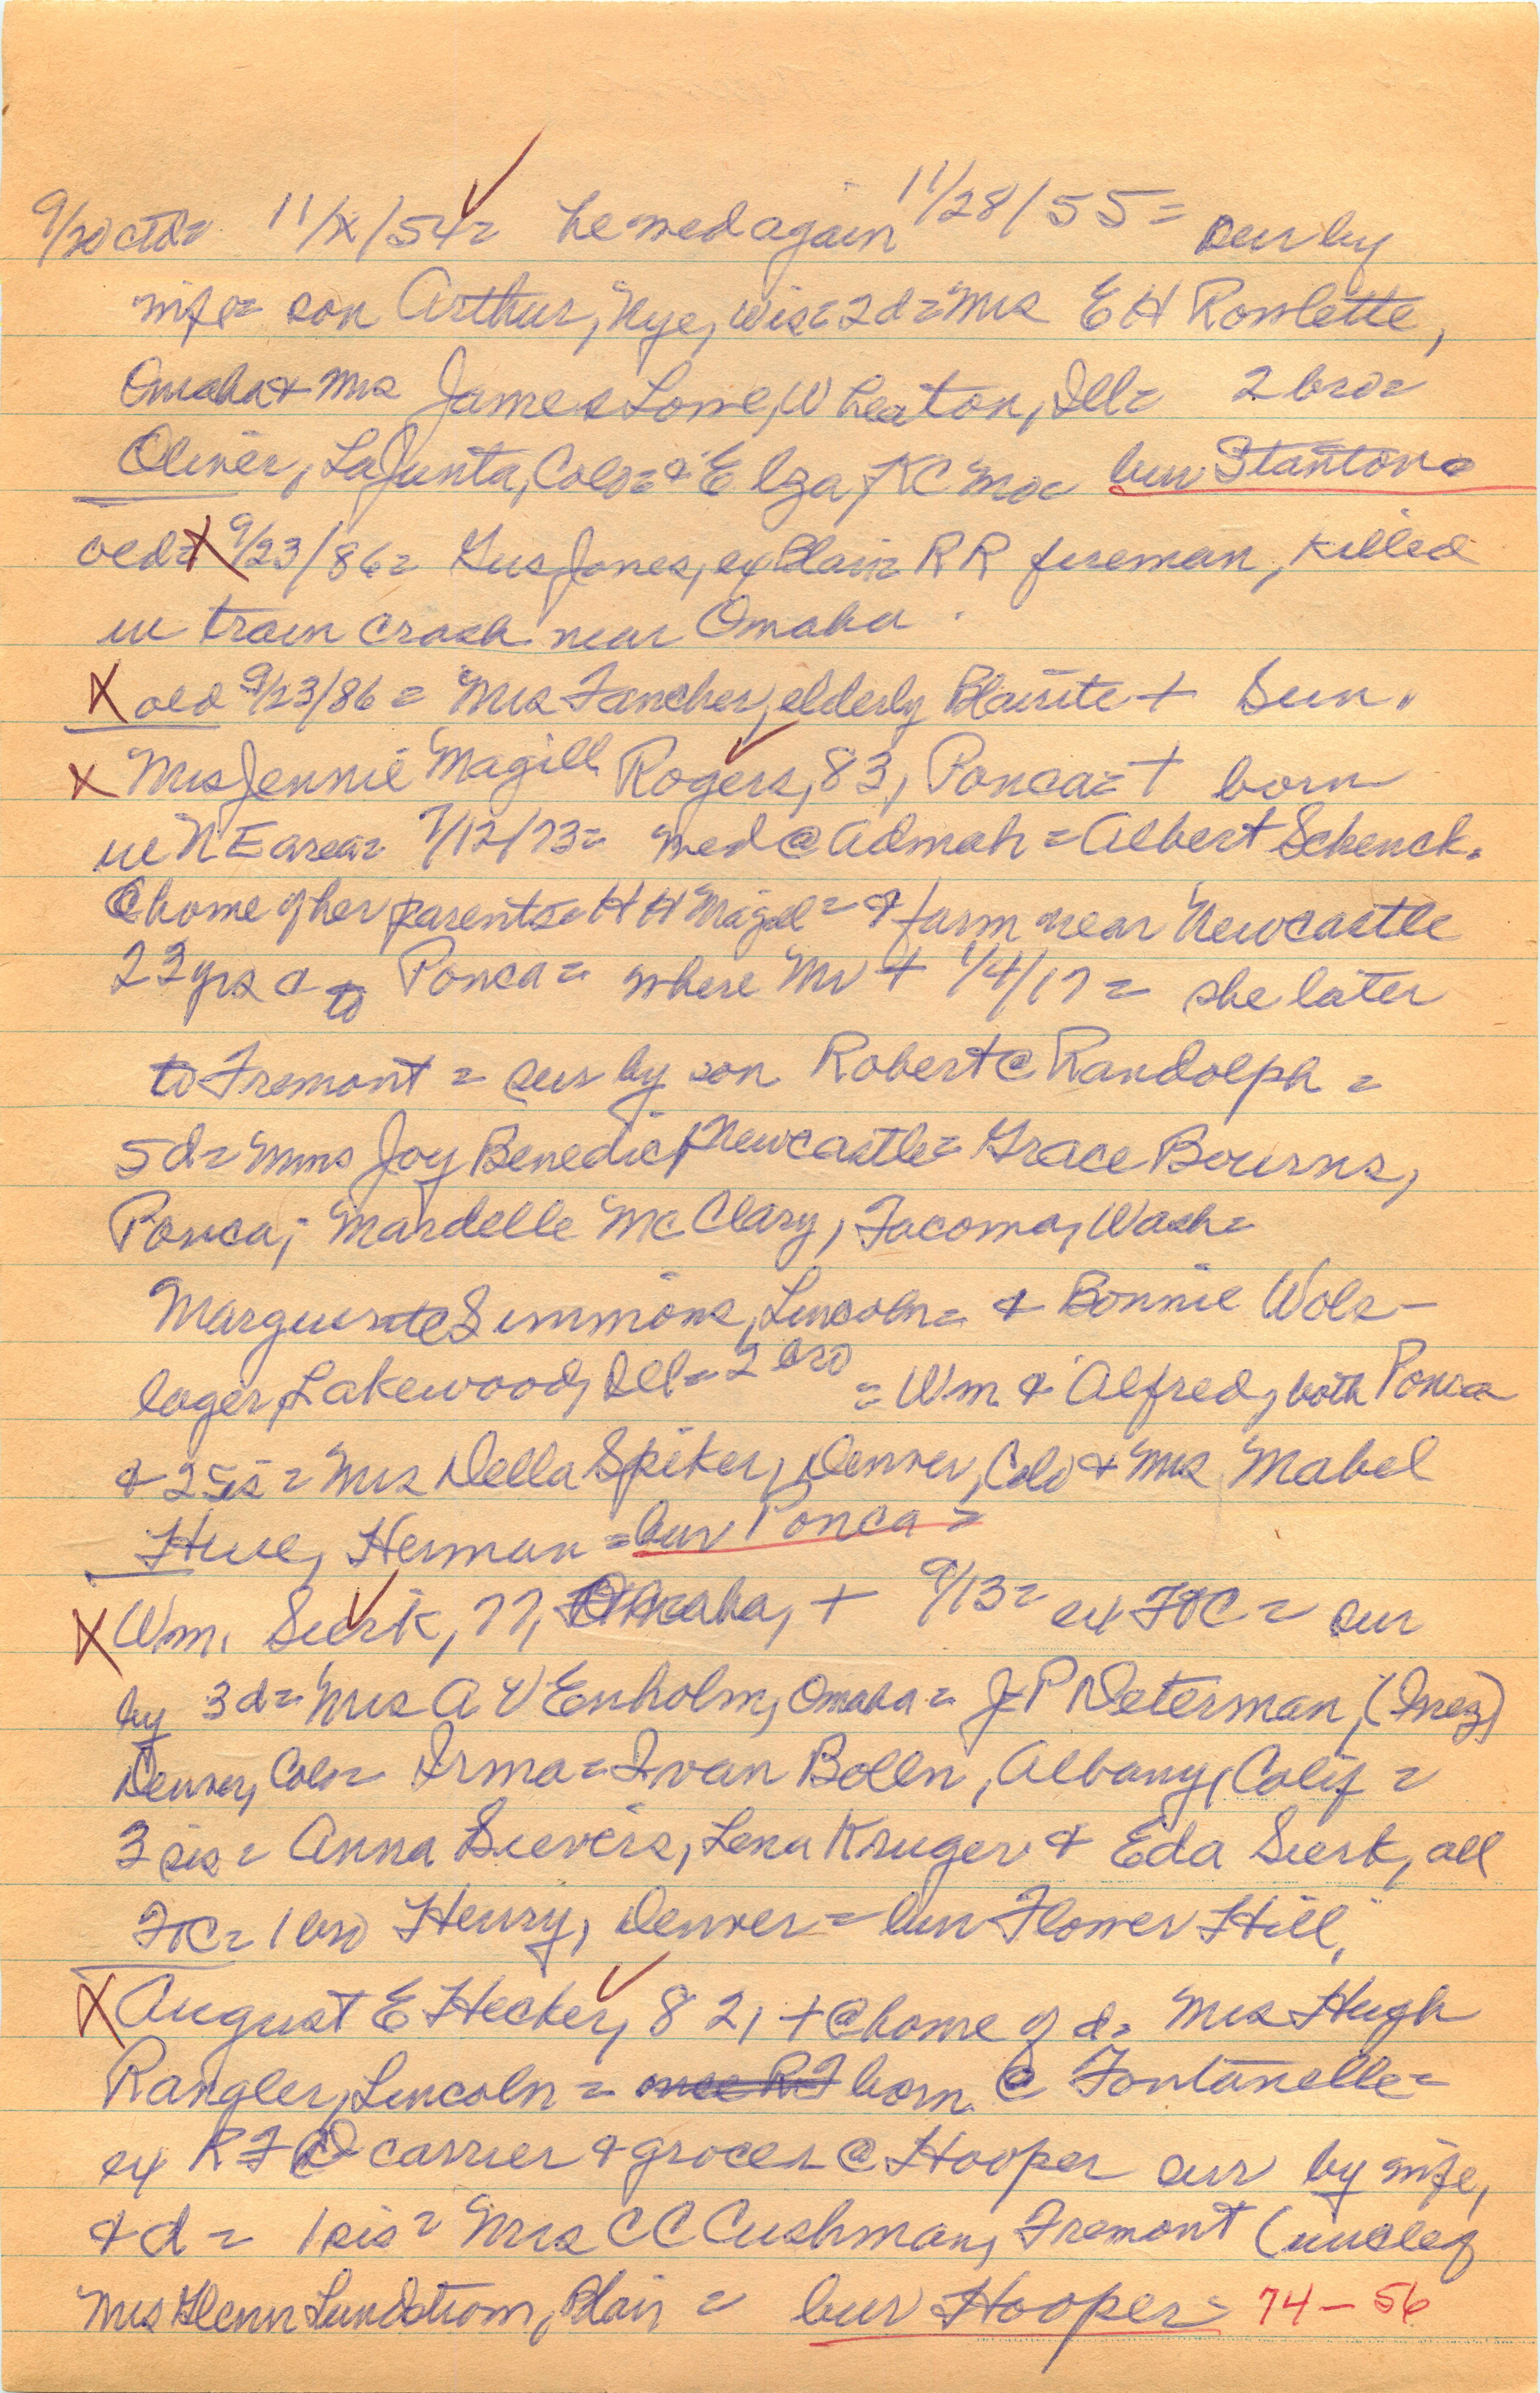 9/20 ctd= 11/x/54= he med again 11/28/55= sur by
wife= son Arthur, Nye, Wis= 2d= Mrs E H Rowlette,
Omaha & Mrs James Lowe, Wheaton, Ill= 2 bro=
Oliver, LaJunta, Colo= & Elza, KC Mo= bur Stanton=
old= X 9/23/86= Gus Jones, ex Blair RR fireman, killed
in train crash near Omaha.
X old 9/23/86 = Mrs Fancher, elderly Blairite + Sun.
X Mrs Jennie Magill Rogers, 83, Ponca= + born
in NE area= 7/12/73= med @ Admah = Albert Schenck.
@ home of her parents= H H Magill= & farm near Newcastle
22 yrs a to Ponca= where Mr + 1/4/17 = she later
to Fremont = sur by son Robert @ Randolph =
5d= Mms Joy Benedict, Newcastle= Grace Bourns,
Ponca; Mardelle McClary, Tacoma, Wash=
Marguerite Simmons, Lincoln= & Bonnie Wols-
lager, Lakewood, Ill= 2 bro = Wm & Alfred, both Ponca
& 2 sis = Mrs Della Spiker, Denver, Colo & Mrs Mabel
Herman = bur Ponca =
X Wm. Sierk, 77, Omaha, + 9/13= ex FTC = sur
by 3d= Mrs A V Enholm, Omaha = J P Determan, (Inez)
Denver, Colo= Irma= Ivan Bolln, Albany, Calif =
3 sis= Anna Sievers, Lena Kruger & Eda Sierk, all
FTC= 1 bro Henry, Denver= bur Flower Hill,
X August E Hecker, 82, + @ home of d= Mrs Hugh
Rangler, Lincoln = once RF born @ Fontanelle=
ex RFD carrier & grocer @ Hooper sur by wife,
& d = 1 sis= Mrs C C Cushman, Fremont (uncle of
Mrs Glenn Lundstrom, Blair = bur Hooper= 74-56